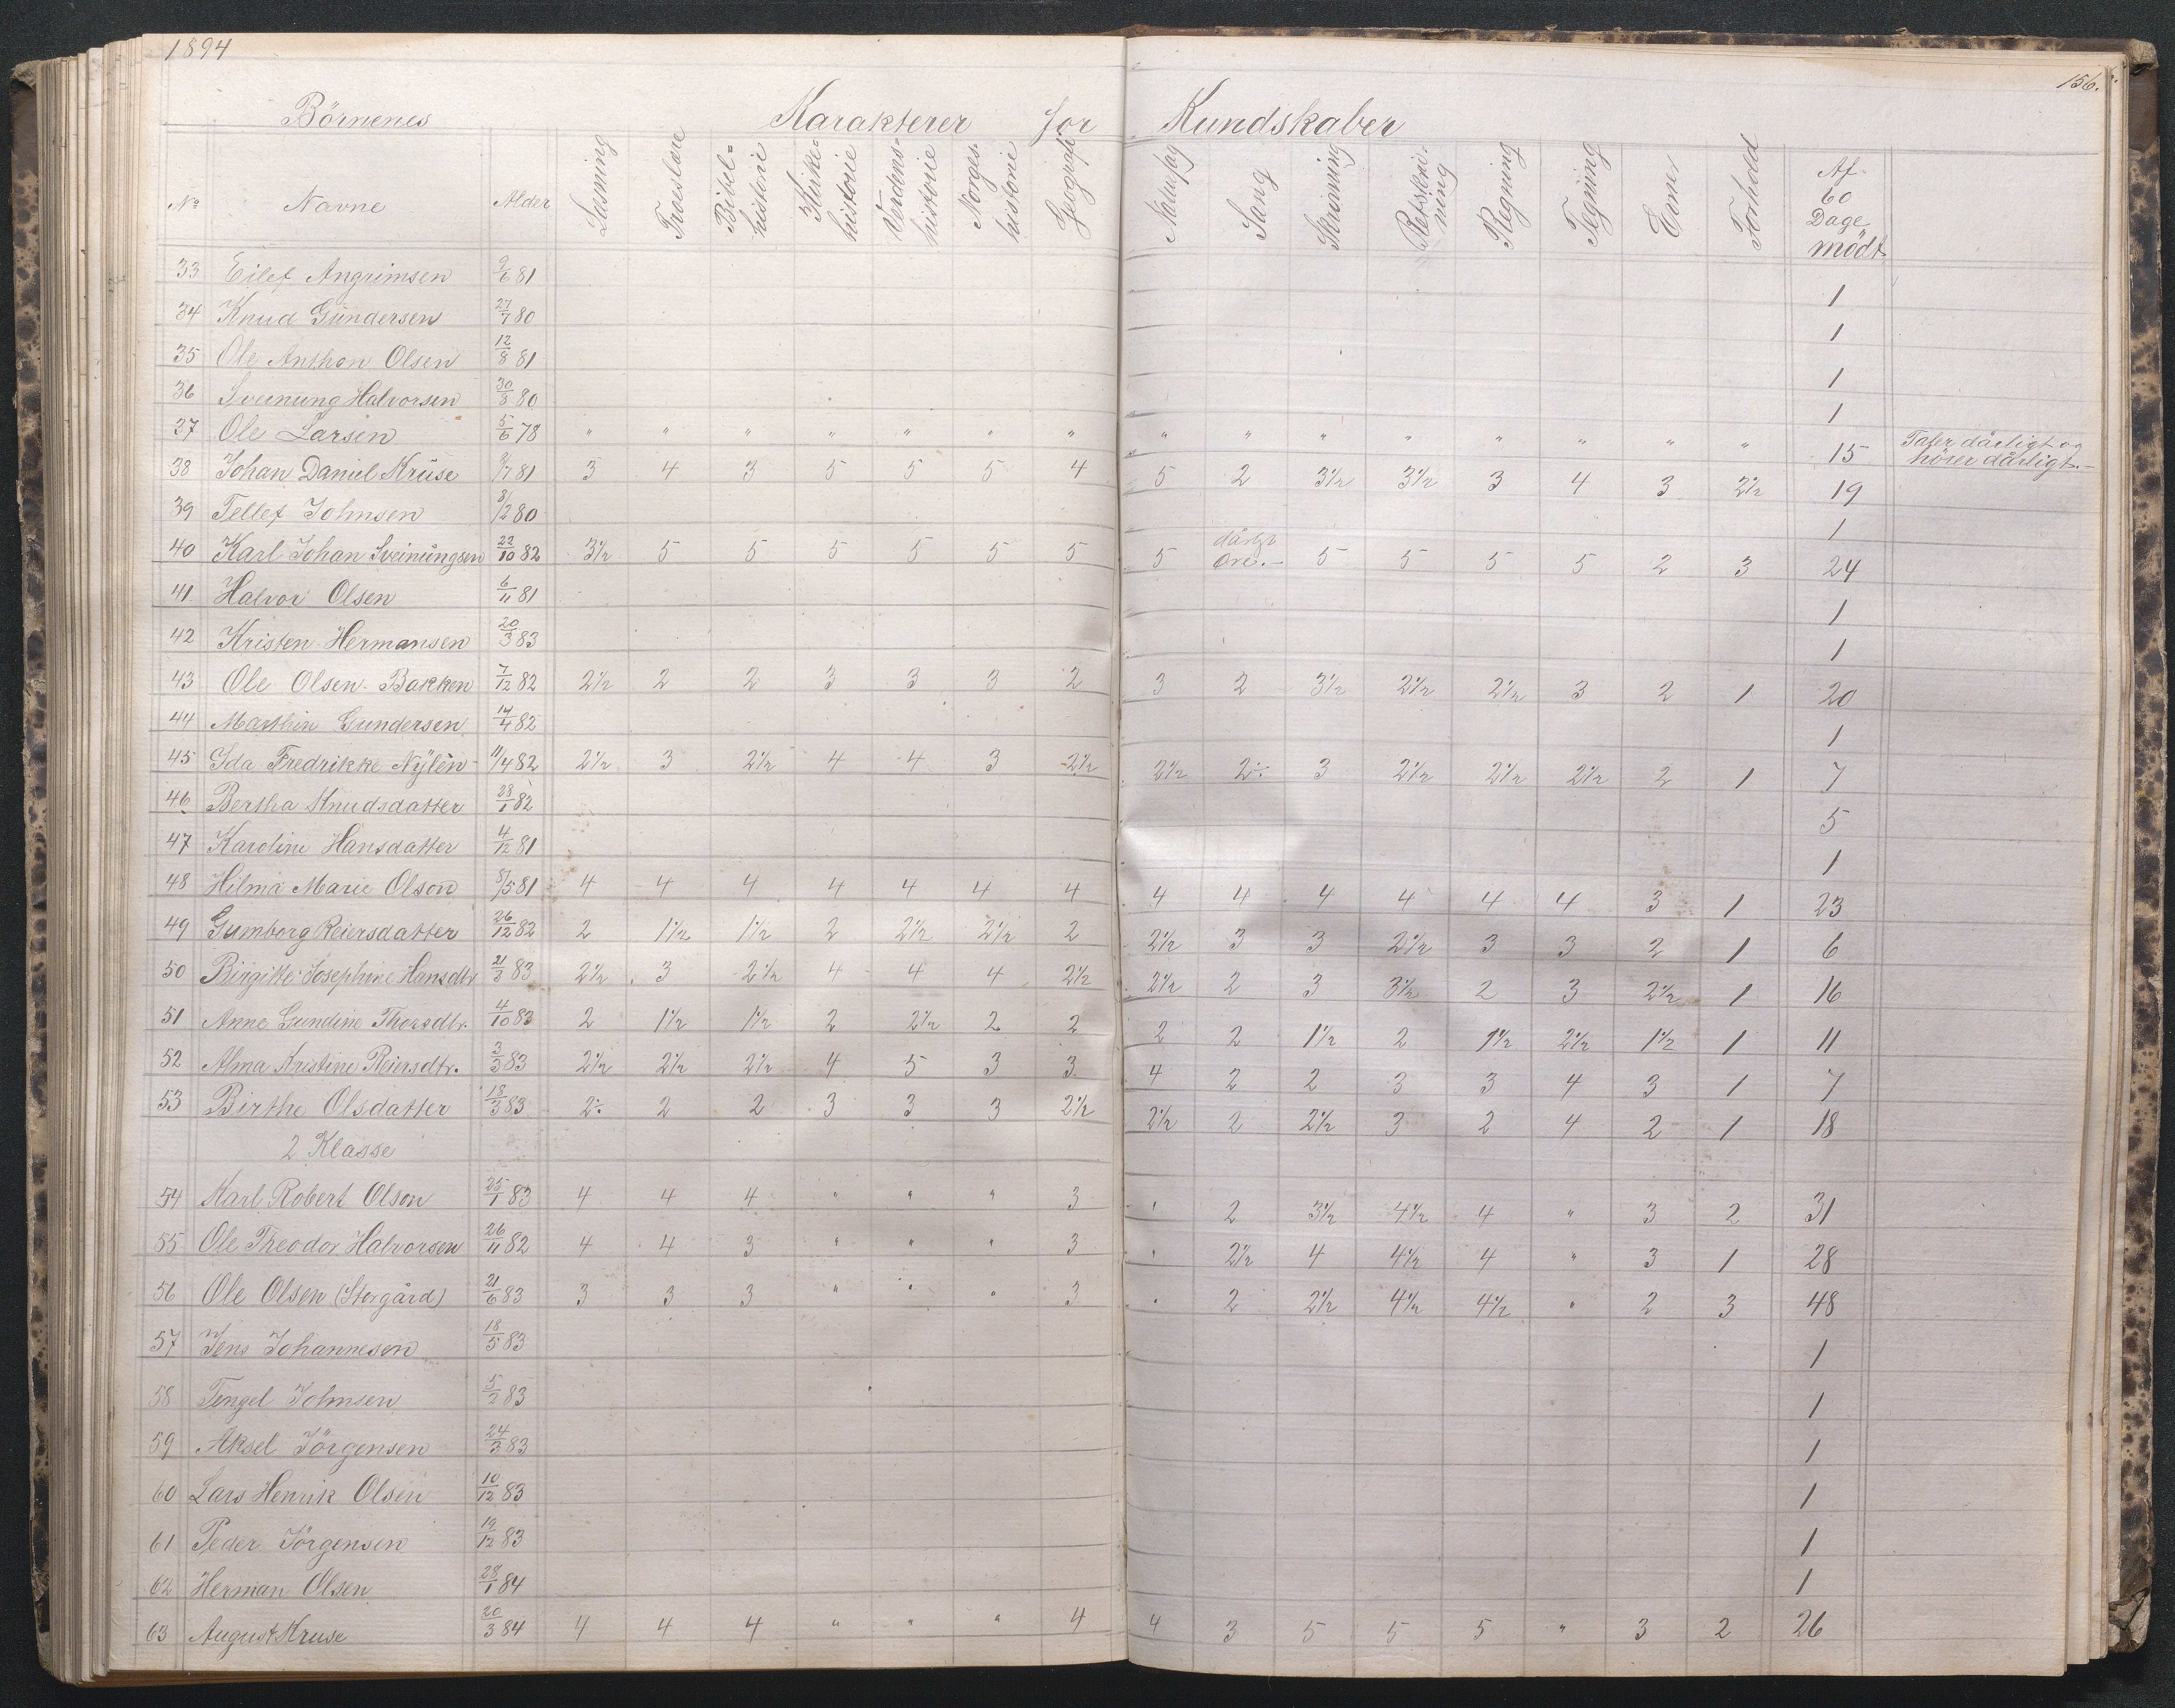 1894
156.
Börnenes Karakterer for Kundskaber
No Navne Alder Læsning Troeslære Bibelhistorie Kirkehistorie Verdenshistorie Norgeshistorie Geografi Naturfag Sang Skrivning Retskrivning Regning Tegning Evne Forhold Af 60 Dage mödt
33 Eilef Angrimsen 9/6 81 1
34 Knud Gundersen 27/7 80 1
35 Ole Anthon Olsen 12/8 81 1
36 Sveinung Halvorsen 30/8 80 1
37 Ole Larsen 5/6 78 " " " " " " " " " " " " " " " 15 Taler dårligt og hörer dårligt.-
38 Johan Daniel Kruse /7 81 3 4 3 5 5 5 4 5 2 3½ 3½ 3 4 3 2½ 19
39 Tellef Johnsen 8/12 80 1
40 Karl Johan Sveinungsen 22/10 82 3½ 5 5 5 5 5 5 5 dårligt Öre.- 5 5 5 5 2 3 24
41 Halvor Olsen 6/11 81 1
42 Kristen Hermansen 20/3 83 1
43 Ole Olsen Bakken 7/12 82 2½ 2 2 3 3 3 2 3 2 3½ 2½ 2½ 3 2 1 20
44 Marthin Gundersen 14/4 82 1
45 Ida Fredrikke Nylèn 11/4 82 2½ 3 2½ 4 4 3 2½ 2½ 2÷ 3 2½ 2½ 2½ 2 1 7
46 Bertha Knudsdatter 28/1 82 5
47 Karoline Hansdatter 4/12 81 1
48 Hilma Marie Olson 31/5 81 4 4 4 4 4 4 4 4 4 4 4 4 4 3 1 23
49 Gumborg Reiersdatter 26/12 82 2 1½ 1½ 2 2½ 2½ 2 2½ 3 3 2½ 3 3 2 1 6
50 Birgitte Josephine Hansdtr 21/3 83 2½ 3 2½ 4 4 4 2½ 2½ 2 3 3½ 2 3 2½ 1 16
51 Anne Gundine Thorsdtr. 4/10 83 2 1½ 1½ 2 2½ 2 2 2 2 1½ 2 1½ 2½ 1½ 1 11
52 Alma Kristine Reiersdtr. 3/3 83 2½ 2½ 2½ 4 5 3 3 4 2 2 3 3 4 3 1 7
53 Birthe Olsdatter 18/3 83 2÷ 2 2 3 3 3 2½ 2½ 2 2½ 3 2 4 2 1 18
2 Klasse
54 Karl Robert Olson 25/1 83 4 4 4 " " " 3 " 2 3½ 4½ 4 " 3 2 31
55 Ole Theodor Halvorsen 26/11 82 4 4 3 " " " 3 " 2½ 4 4½ 4 " 3 1 28
56 Ole Olsen (Storgård) 21/6 83 3 3 3 " " " 3 " 2 2½ 4½ 4½ " 2 3 48
57 Jens Johannesen 18/5 83 1
58 Tengel Johnsen 5/2 83 1
59 Aksel Jörgensen 24/3 83 1
60 Lars Henrik Olsen 10/12 83 1
61 Peder Jörgensen 19/12 83 1
62 Herman Olsen 28/1 84 1
63 August Kruse 20/3 84 4 4 4 " " " 4 4 3 5 5 5 " 3 2 26